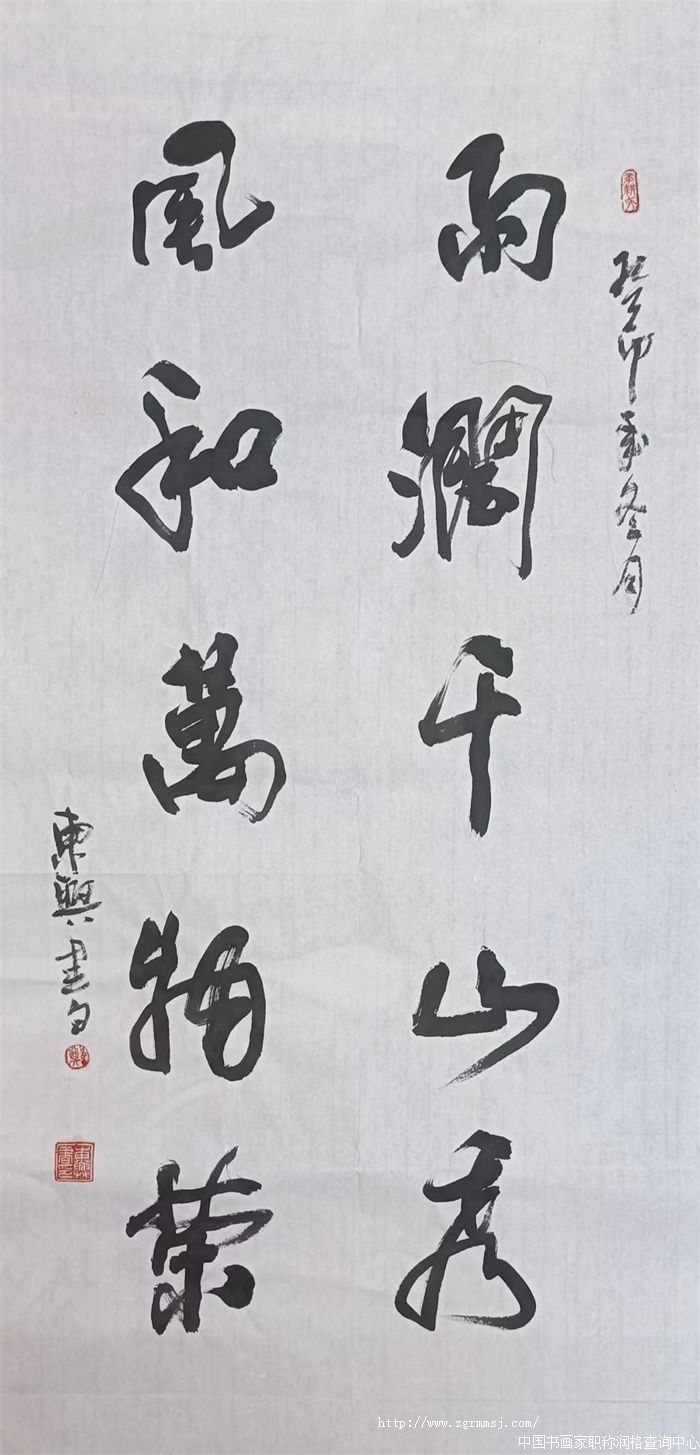 癸卯年冬月
雨潤千山秀
風和萬物榮
東興書句
http://www.zgrmmsj.com
中国书画家职称润格查询中心